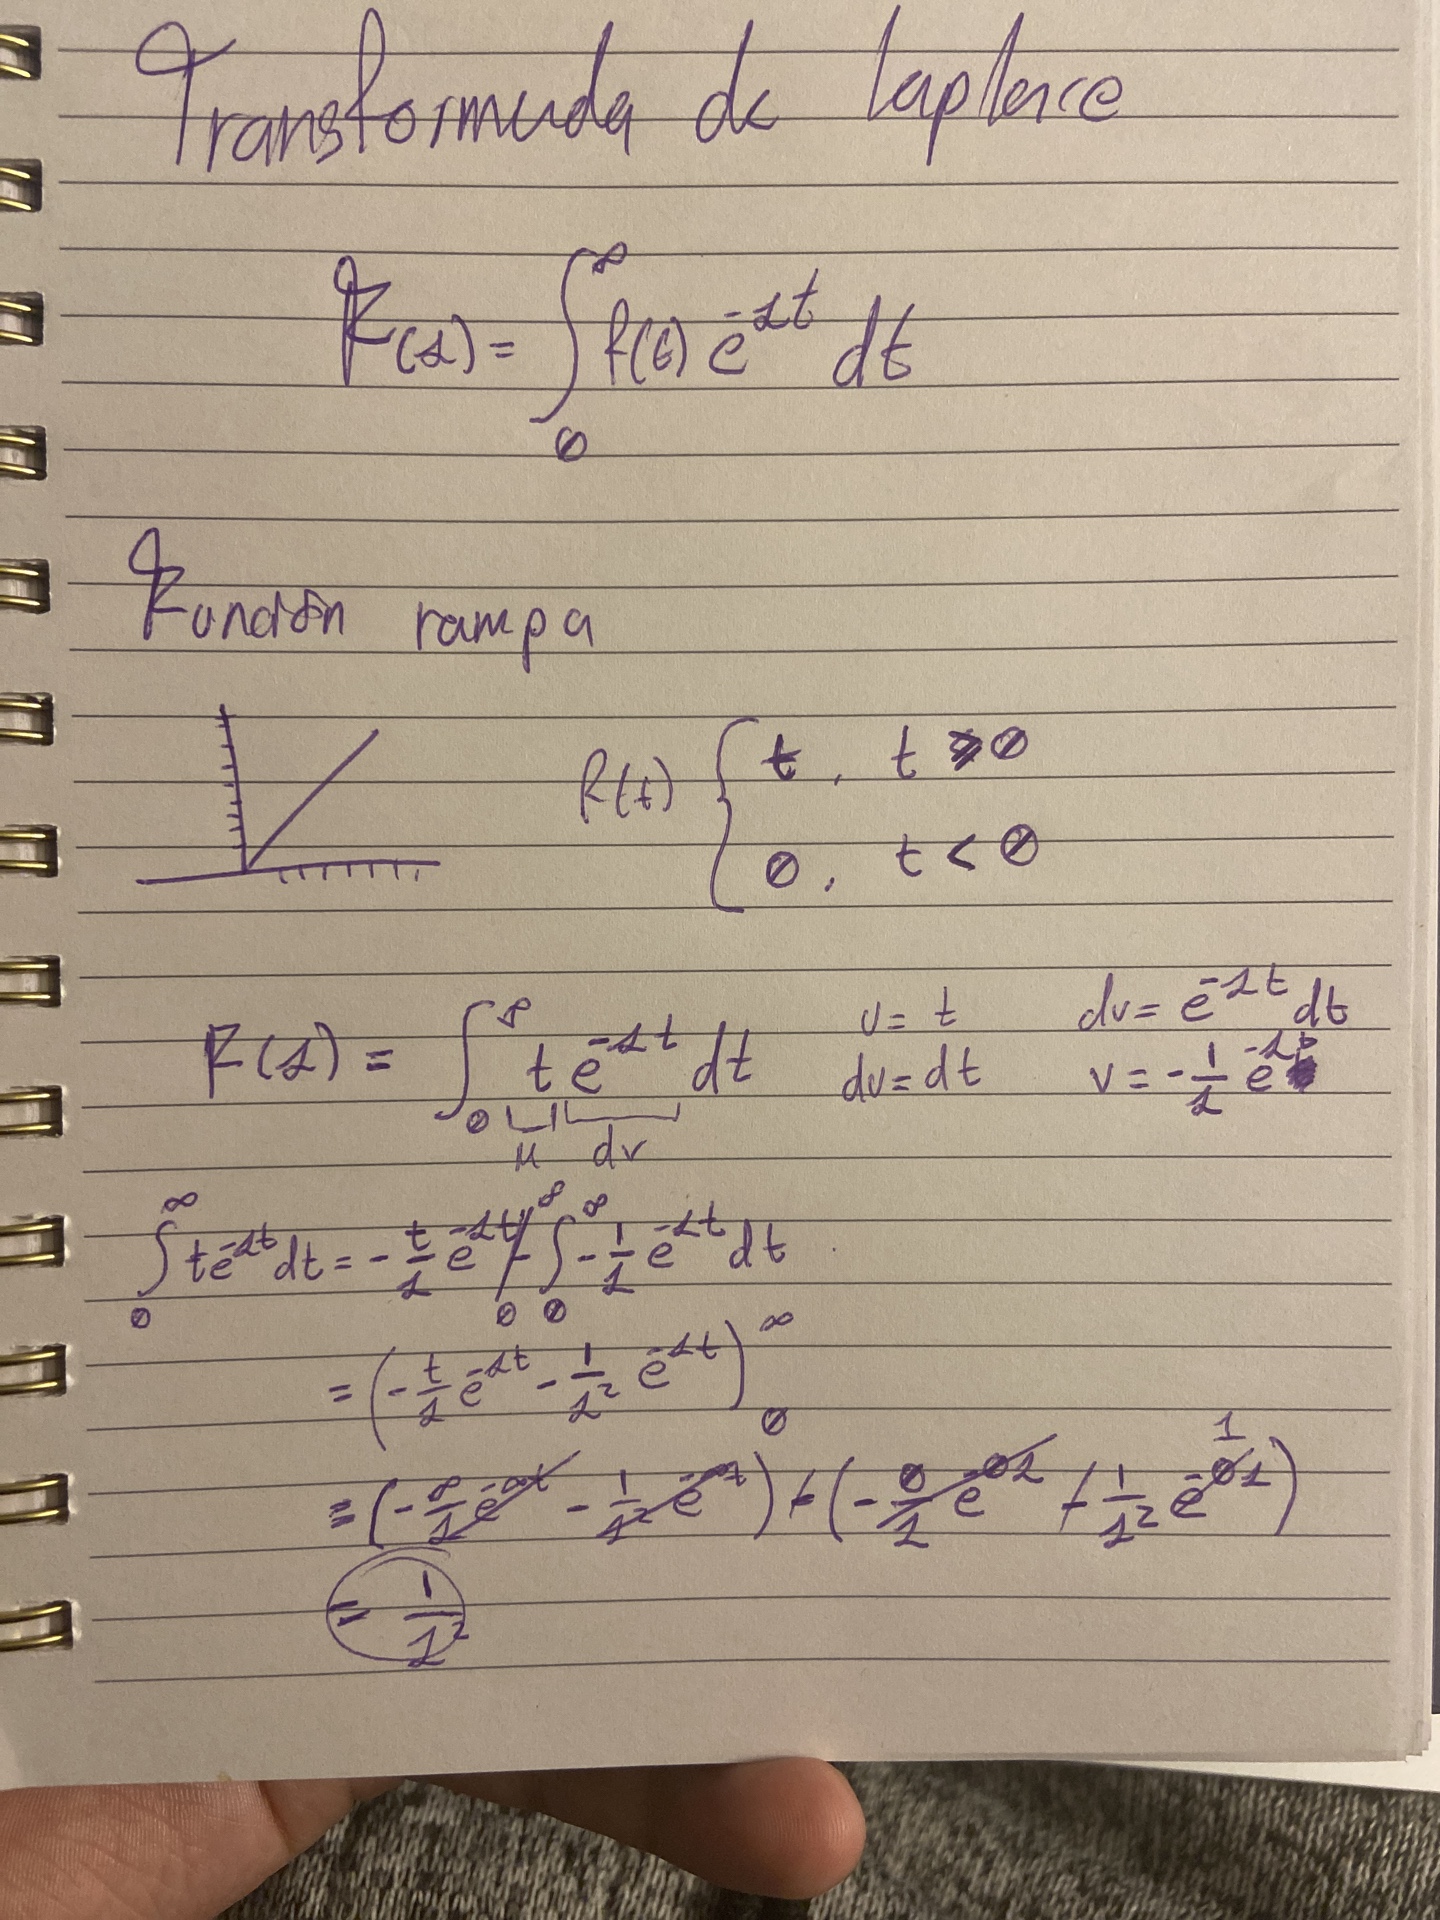 Transformada de laplace
F(s) = ∫₀^∞ f(t) e^-st dt
Función rampa
f(t) { t , t ≥ 0
0 , t < 0
F(s) = ∫₀^∞ t e^-st dt   u = t   dv = e^-st dt
du = dt   v = -1/s e^-st
u   dv
∫₀^∞ t e^-st dt = -t/s e^-st |₀^∞ - ∫₀^∞ -1/s e^-st dt
= (-t/s e^-st - 1/s² e^-st)₀^∞
= (-∞/s e^-∞t - 1/s² e^-∞t) + (-0/s e^-0s + 1/s² e^-0s) 1
= 1/s²